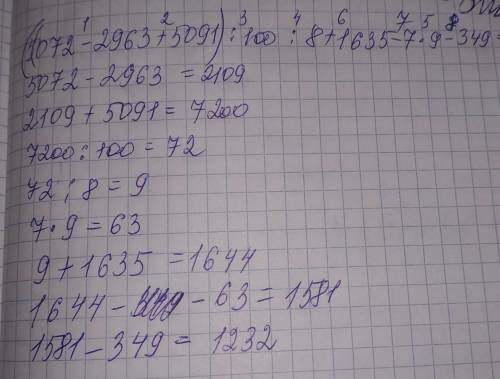 1 2 3 4 6 7 5 8
(5072-2963+5091):100:8+1635-7·9-349=
5072-2963 =2109
2109+5091= 7200
7200:100=72
72:8=9
7·9=63
9+1635 =1644
1644- - 63 = 1581
1581-349 = 1232